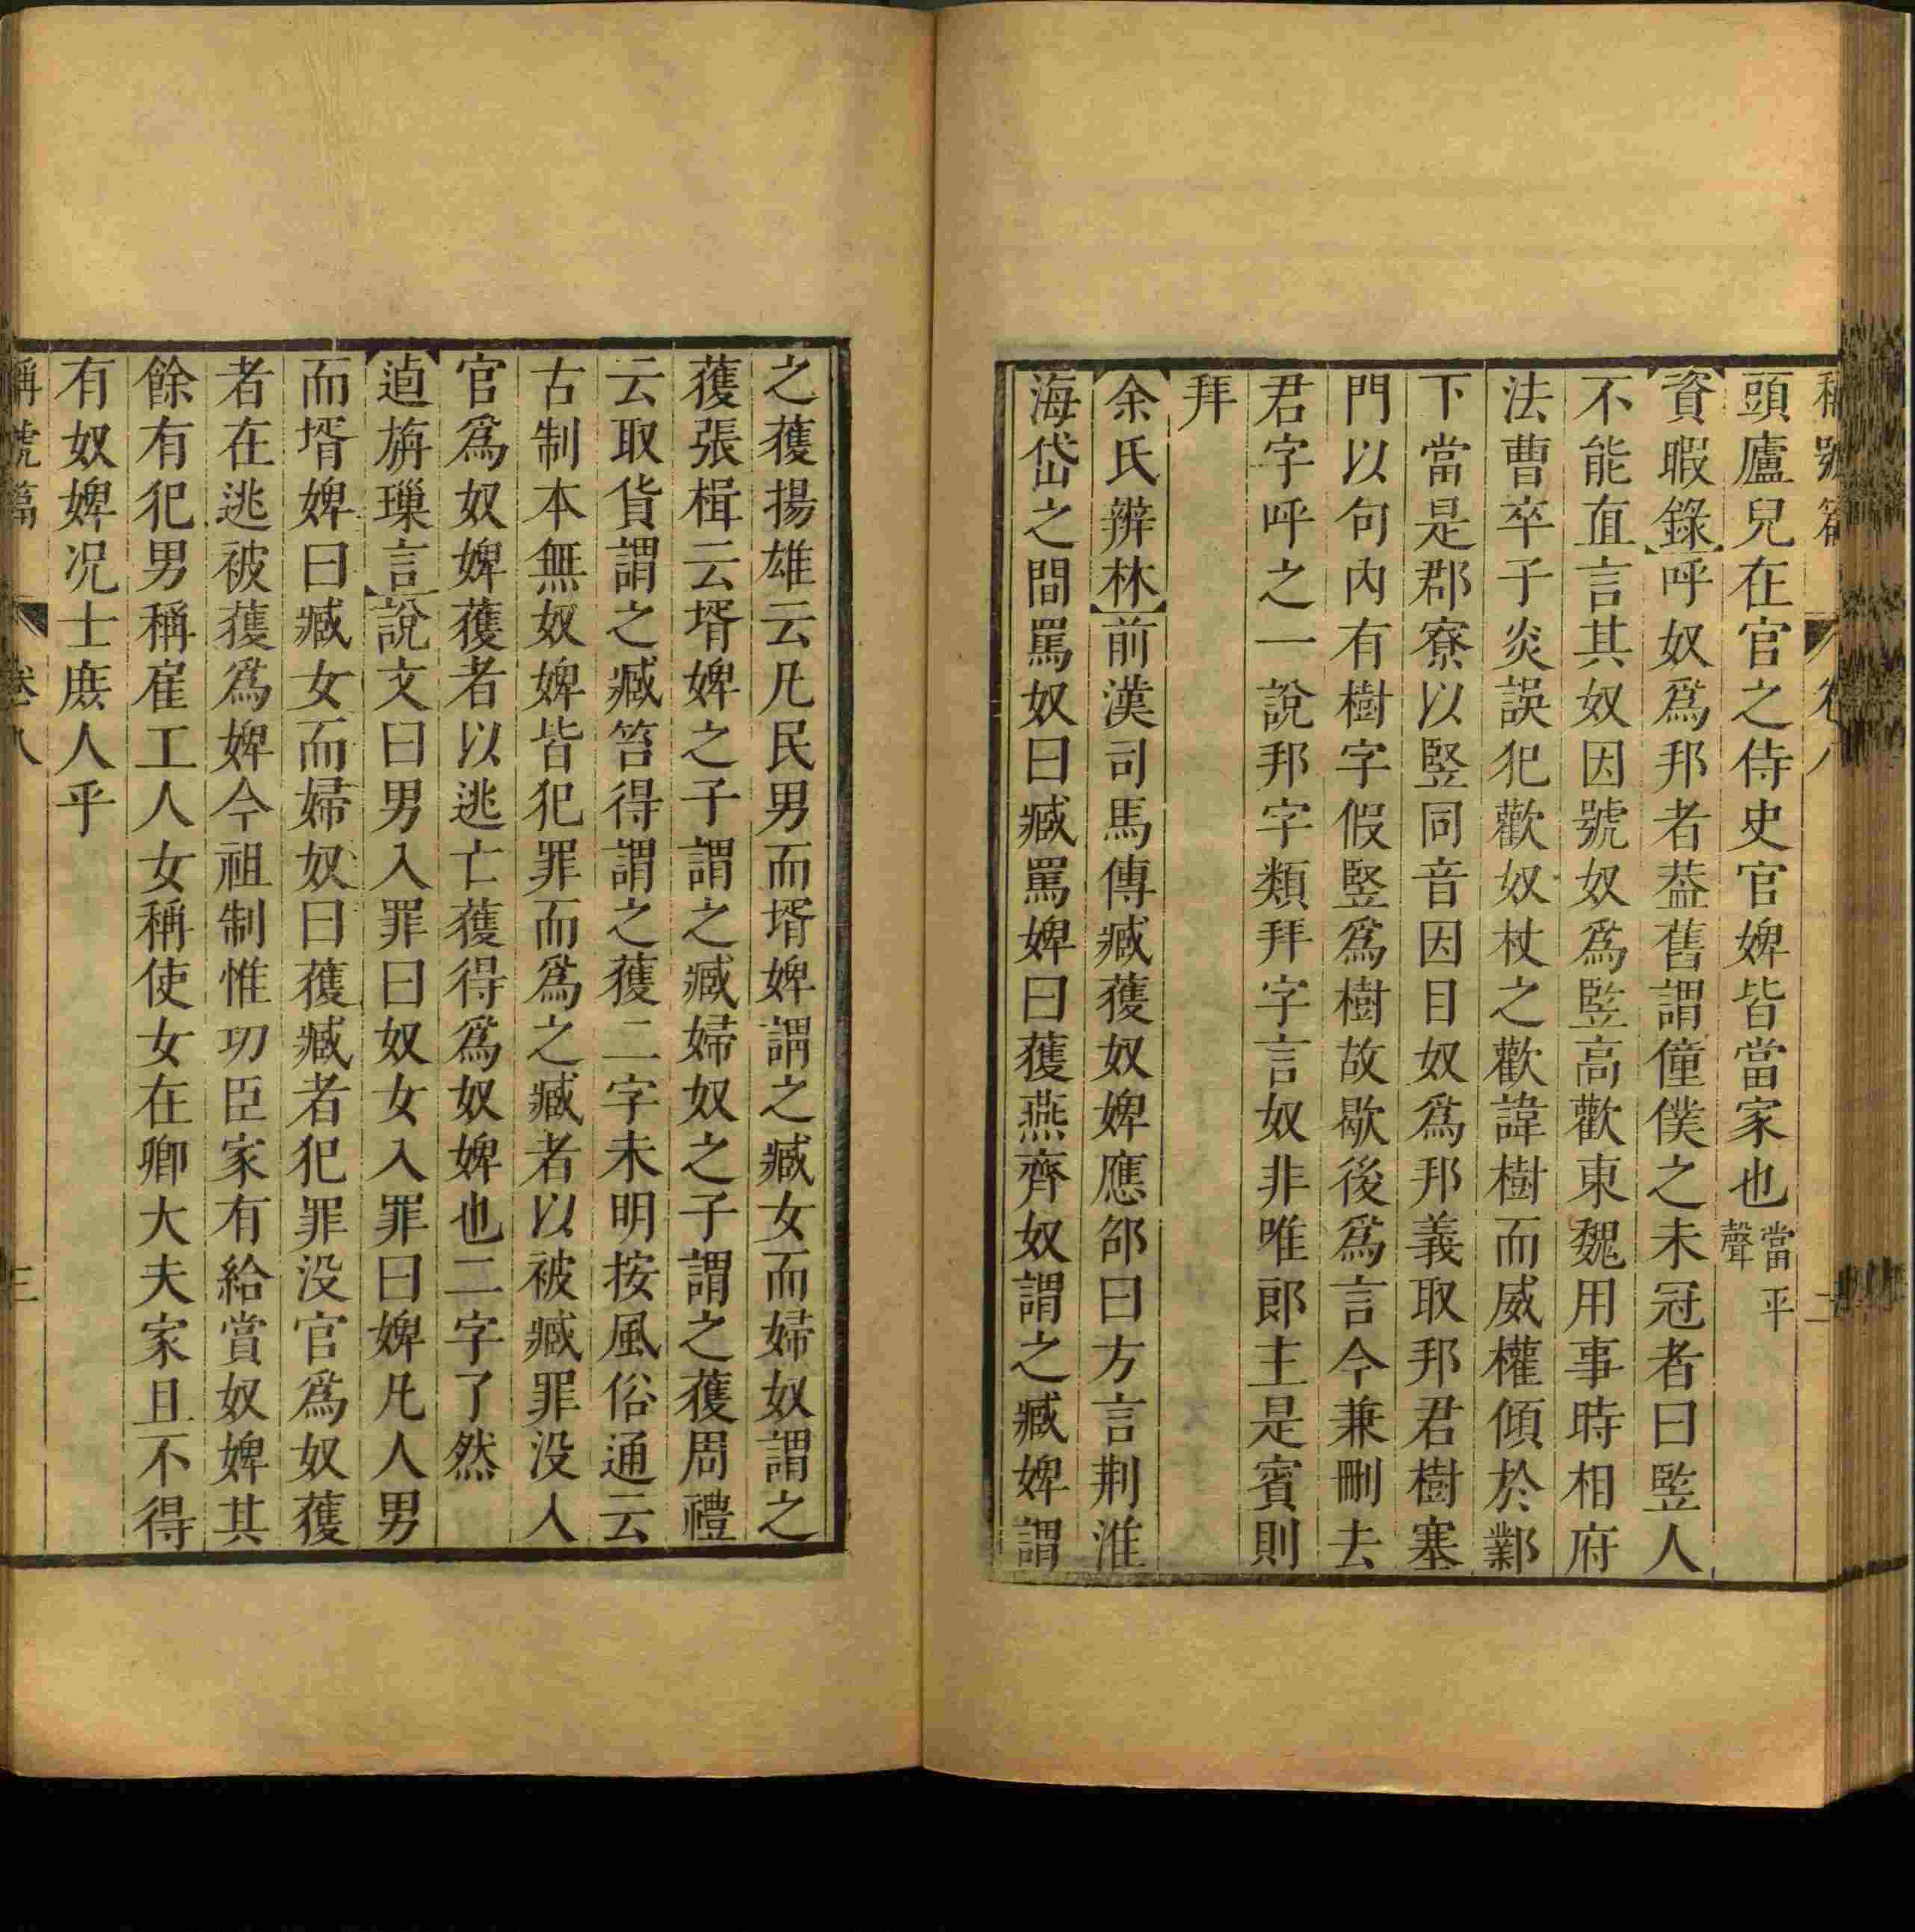 稱號篇 卷八 二
頭廬兒在官之侍史官婢皆當家也當平聲
資暇錄呼奴爲邦者葢舊謂僮僕之未冠者曰竪人
不能直言其奴因號奴爲竪高歡東魏用事時相府
法曹卒子炎誤犯歡奴杖之歡諱樹而威權傾於鄴
下當是郡寮以竪同音因目奴爲邦義取邦君樹塞
門以句內有樹字假竪爲樹故歇後爲言今兼刪去
君字呼之一說邦字類拜字言奴非唯郎主是賓則
拜
余氏辨林前漢司馬傳臧獲奴婢應邵曰方言荆淮
海岱之間罵奴曰臧罵婢曰獲燕齊奴謂之臧婢謂
之獲揚雄云凡民男而壻婢謂之臧女而婦奴謂之
獲張楫云壻婢之子謂之臧婦奴之子謂之獲周禮
云取貨謂之臧笞得謂之獲二字未明按風俗通云
古制本無奴婢皆犯罪而爲之臧者以被臧罪没入
官爲奴婢獲者以逃亡獲得爲奴婢也二字了然
逌旃璅言說文曰男入罪曰奴女入罪曰婢凡人男
而壻婢曰臧女而婦奴曰獲臧者犯罪没官爲奴獲
者在逃被獲爲婢今祖制惟功臣家有給賞奴婢其
餘有犯男稱雇工人女稱使女在卿大夫家且不得
有奴婢况士庻人乎
稱號篇 卷八 三